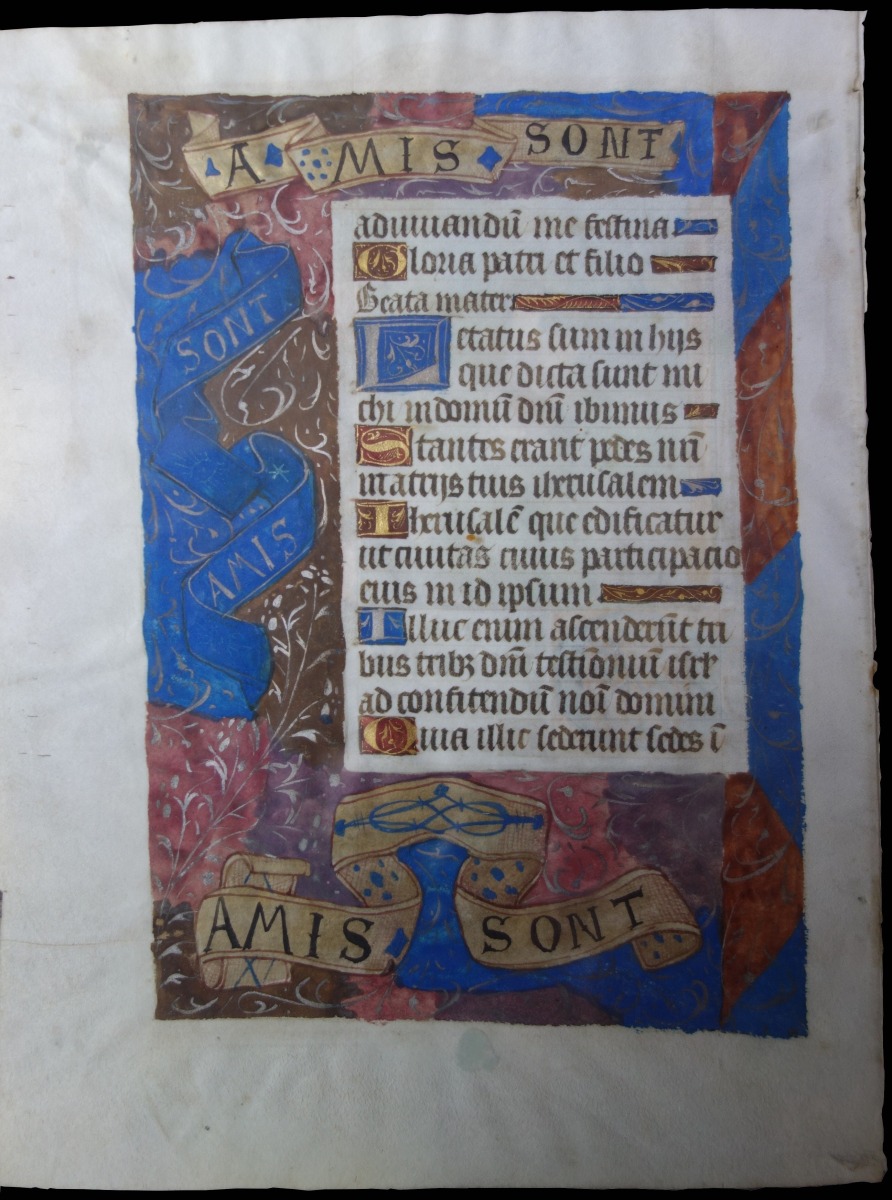 A MIS SONT
SONT
AMIS
adiuuandū me festina
Gloria patri et filio
Beata mater
Letatus sum in hijs
que dicta sunt mi
chi in domū dnī ibimus
Stantes erant pedes nr̄i
in atrijs tuis iherusalem
Iherusalē que edificatur
ut ciuitas cuius participacio
eius in id ipsum
Illuc enim ascenderūt tri
bus tribȝ dnī testīoniū isrl̄
ad confitendū noī domini
Quia illic sederunt sedes ī
AMIS SONT